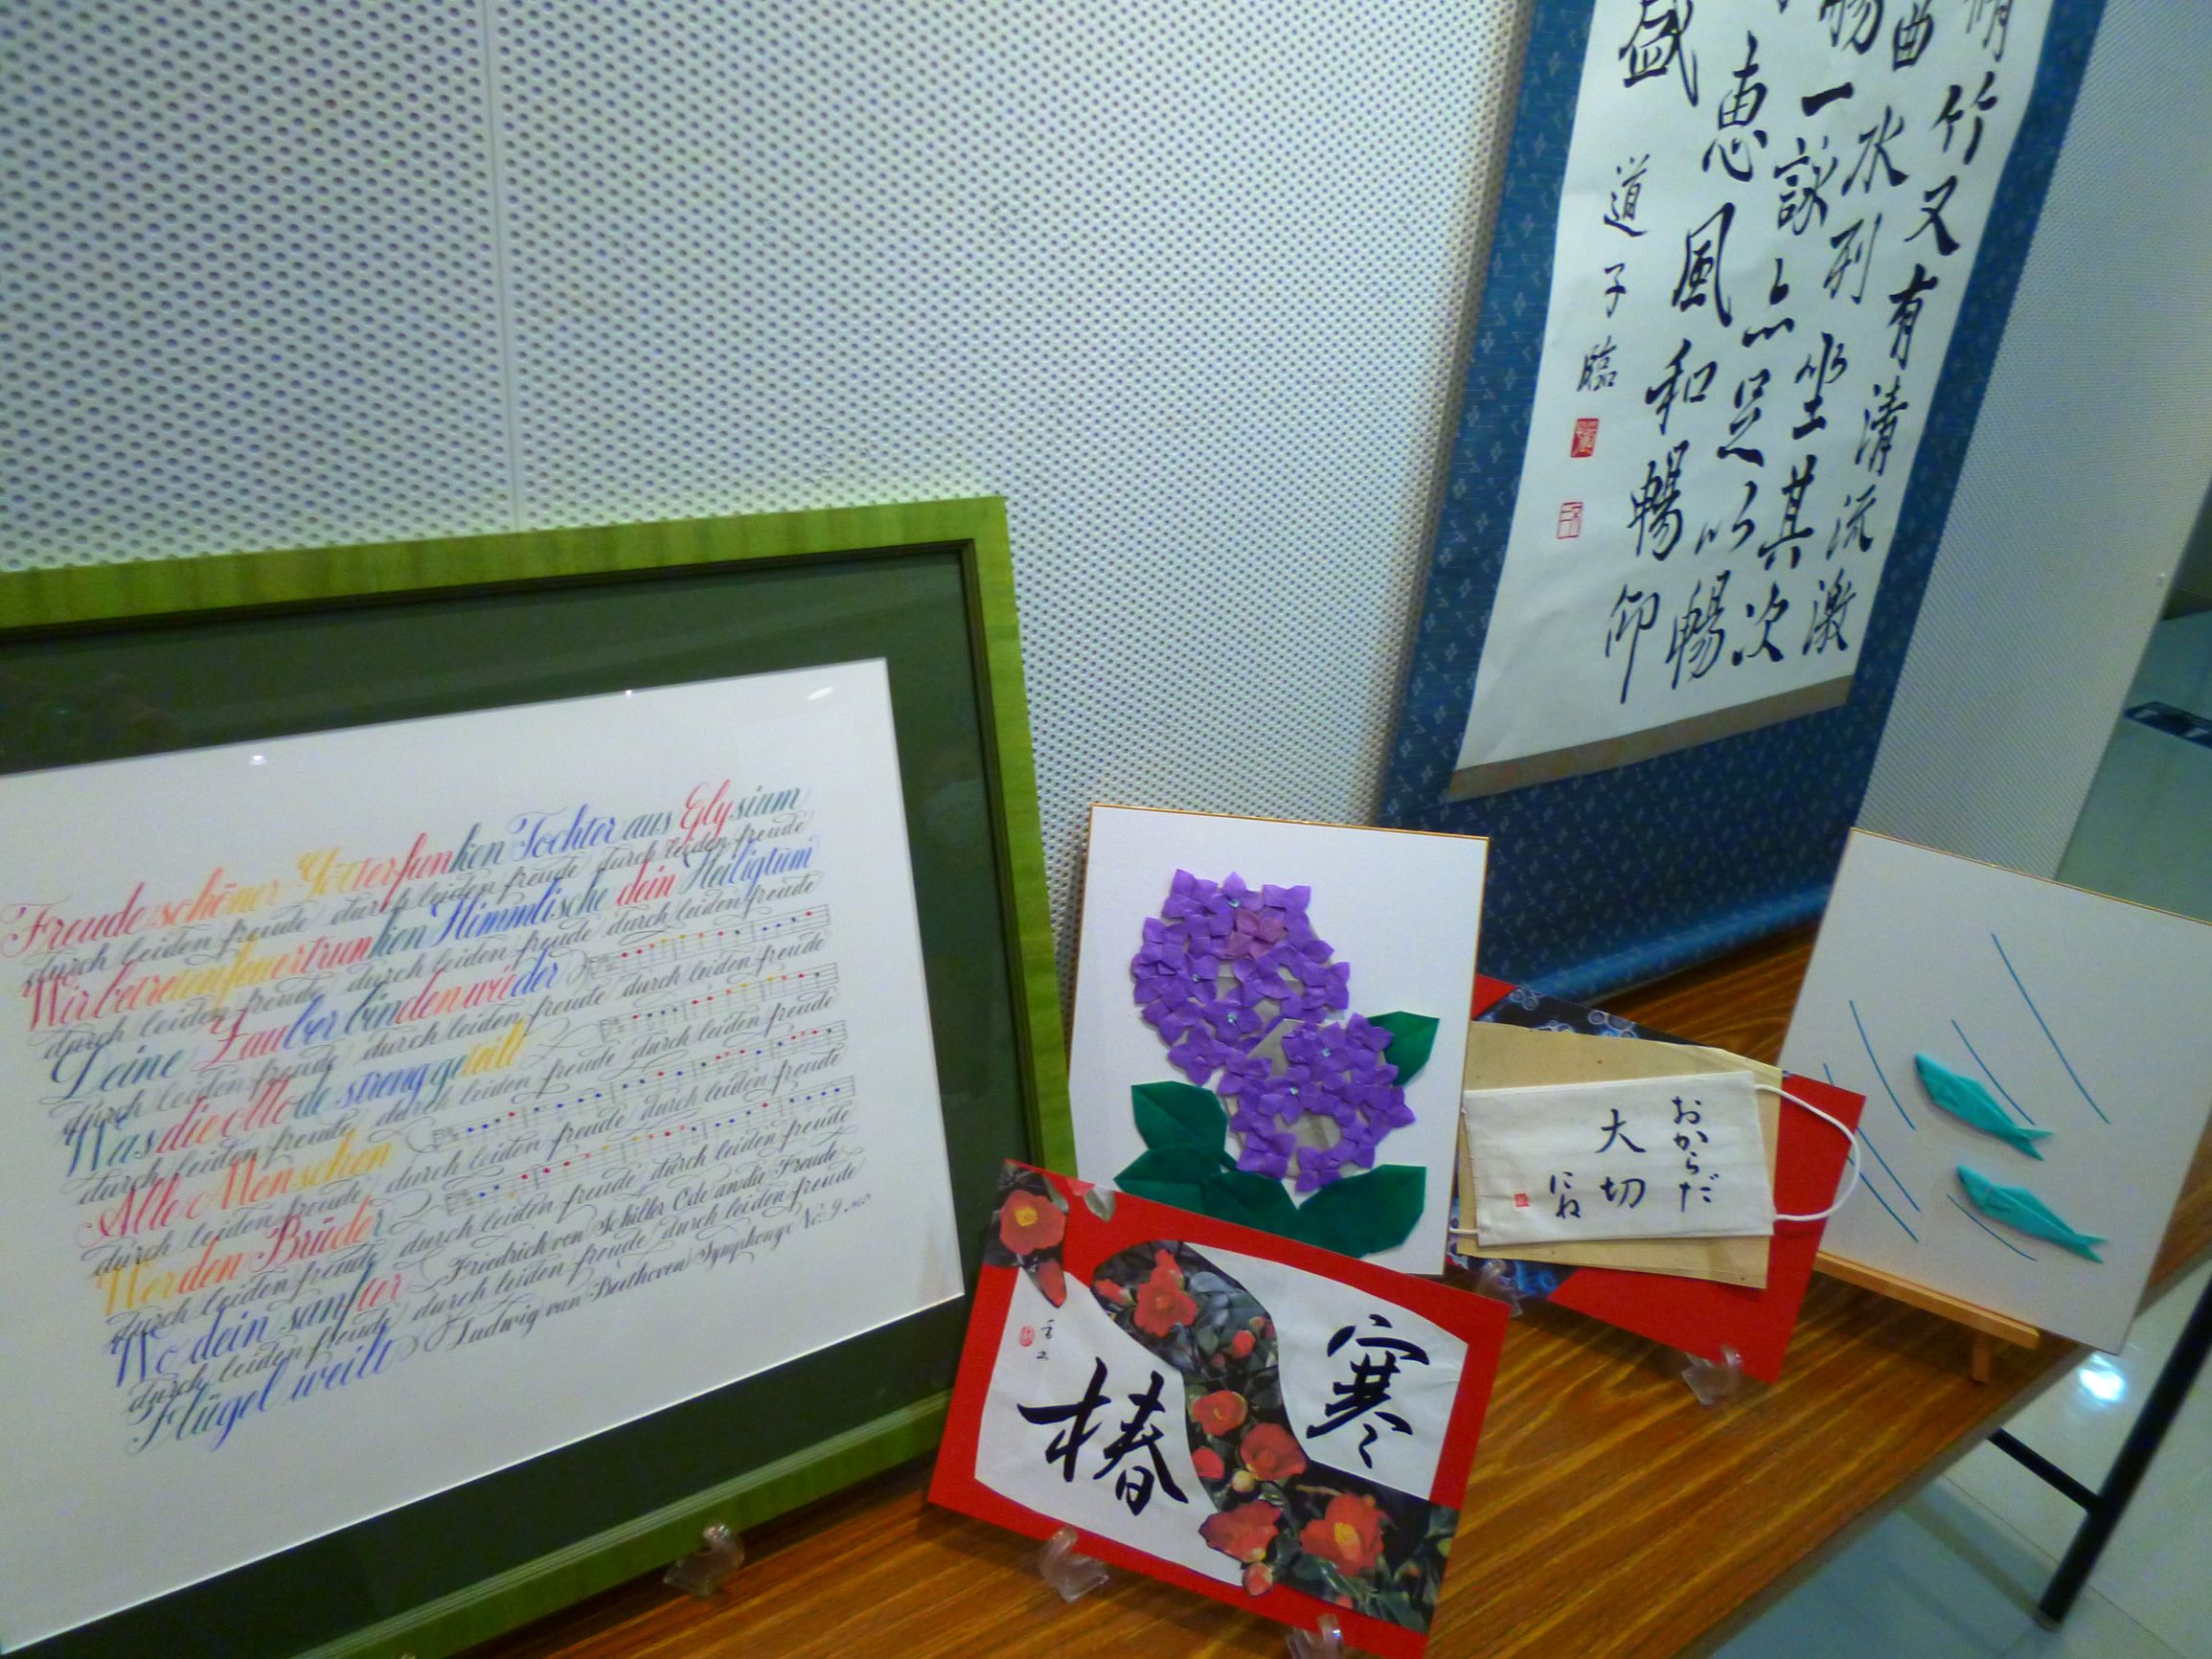 Freude schöner Götterfunken Tochter aus Elysium
durch leiden freude durch leiden freude durch leiden freude
Wir betreten feuertrunken Himmlische dein Heiligtum
durch leiden freude durch leiden freude durch leiden freude
Deine Zauber binden wieder
durch leiden freude durch leiden freude durch leiden freude
Was die Mode streng geteilt
durch leiden freude durch leiden freude durch leiden freude
Alle Menschen
durch leiden freude durch leiden freude durch leiden freude
Werden Brüder
durch leiden freude durch leiden freude durch leiden freude
Wo dein sanfter Friedrich von Schiller Ode an die Freude
durch leiden freude durch leiden freude durch leiden freude
Flügel weilt Ludwig van Beethoven Symphony No. 9
脩竹又有清流激
曲水列坐其次
暢一詠亦足以暢
惠風和暢仰
盛
道子臨
おからだ
大切
にね
寒
椿